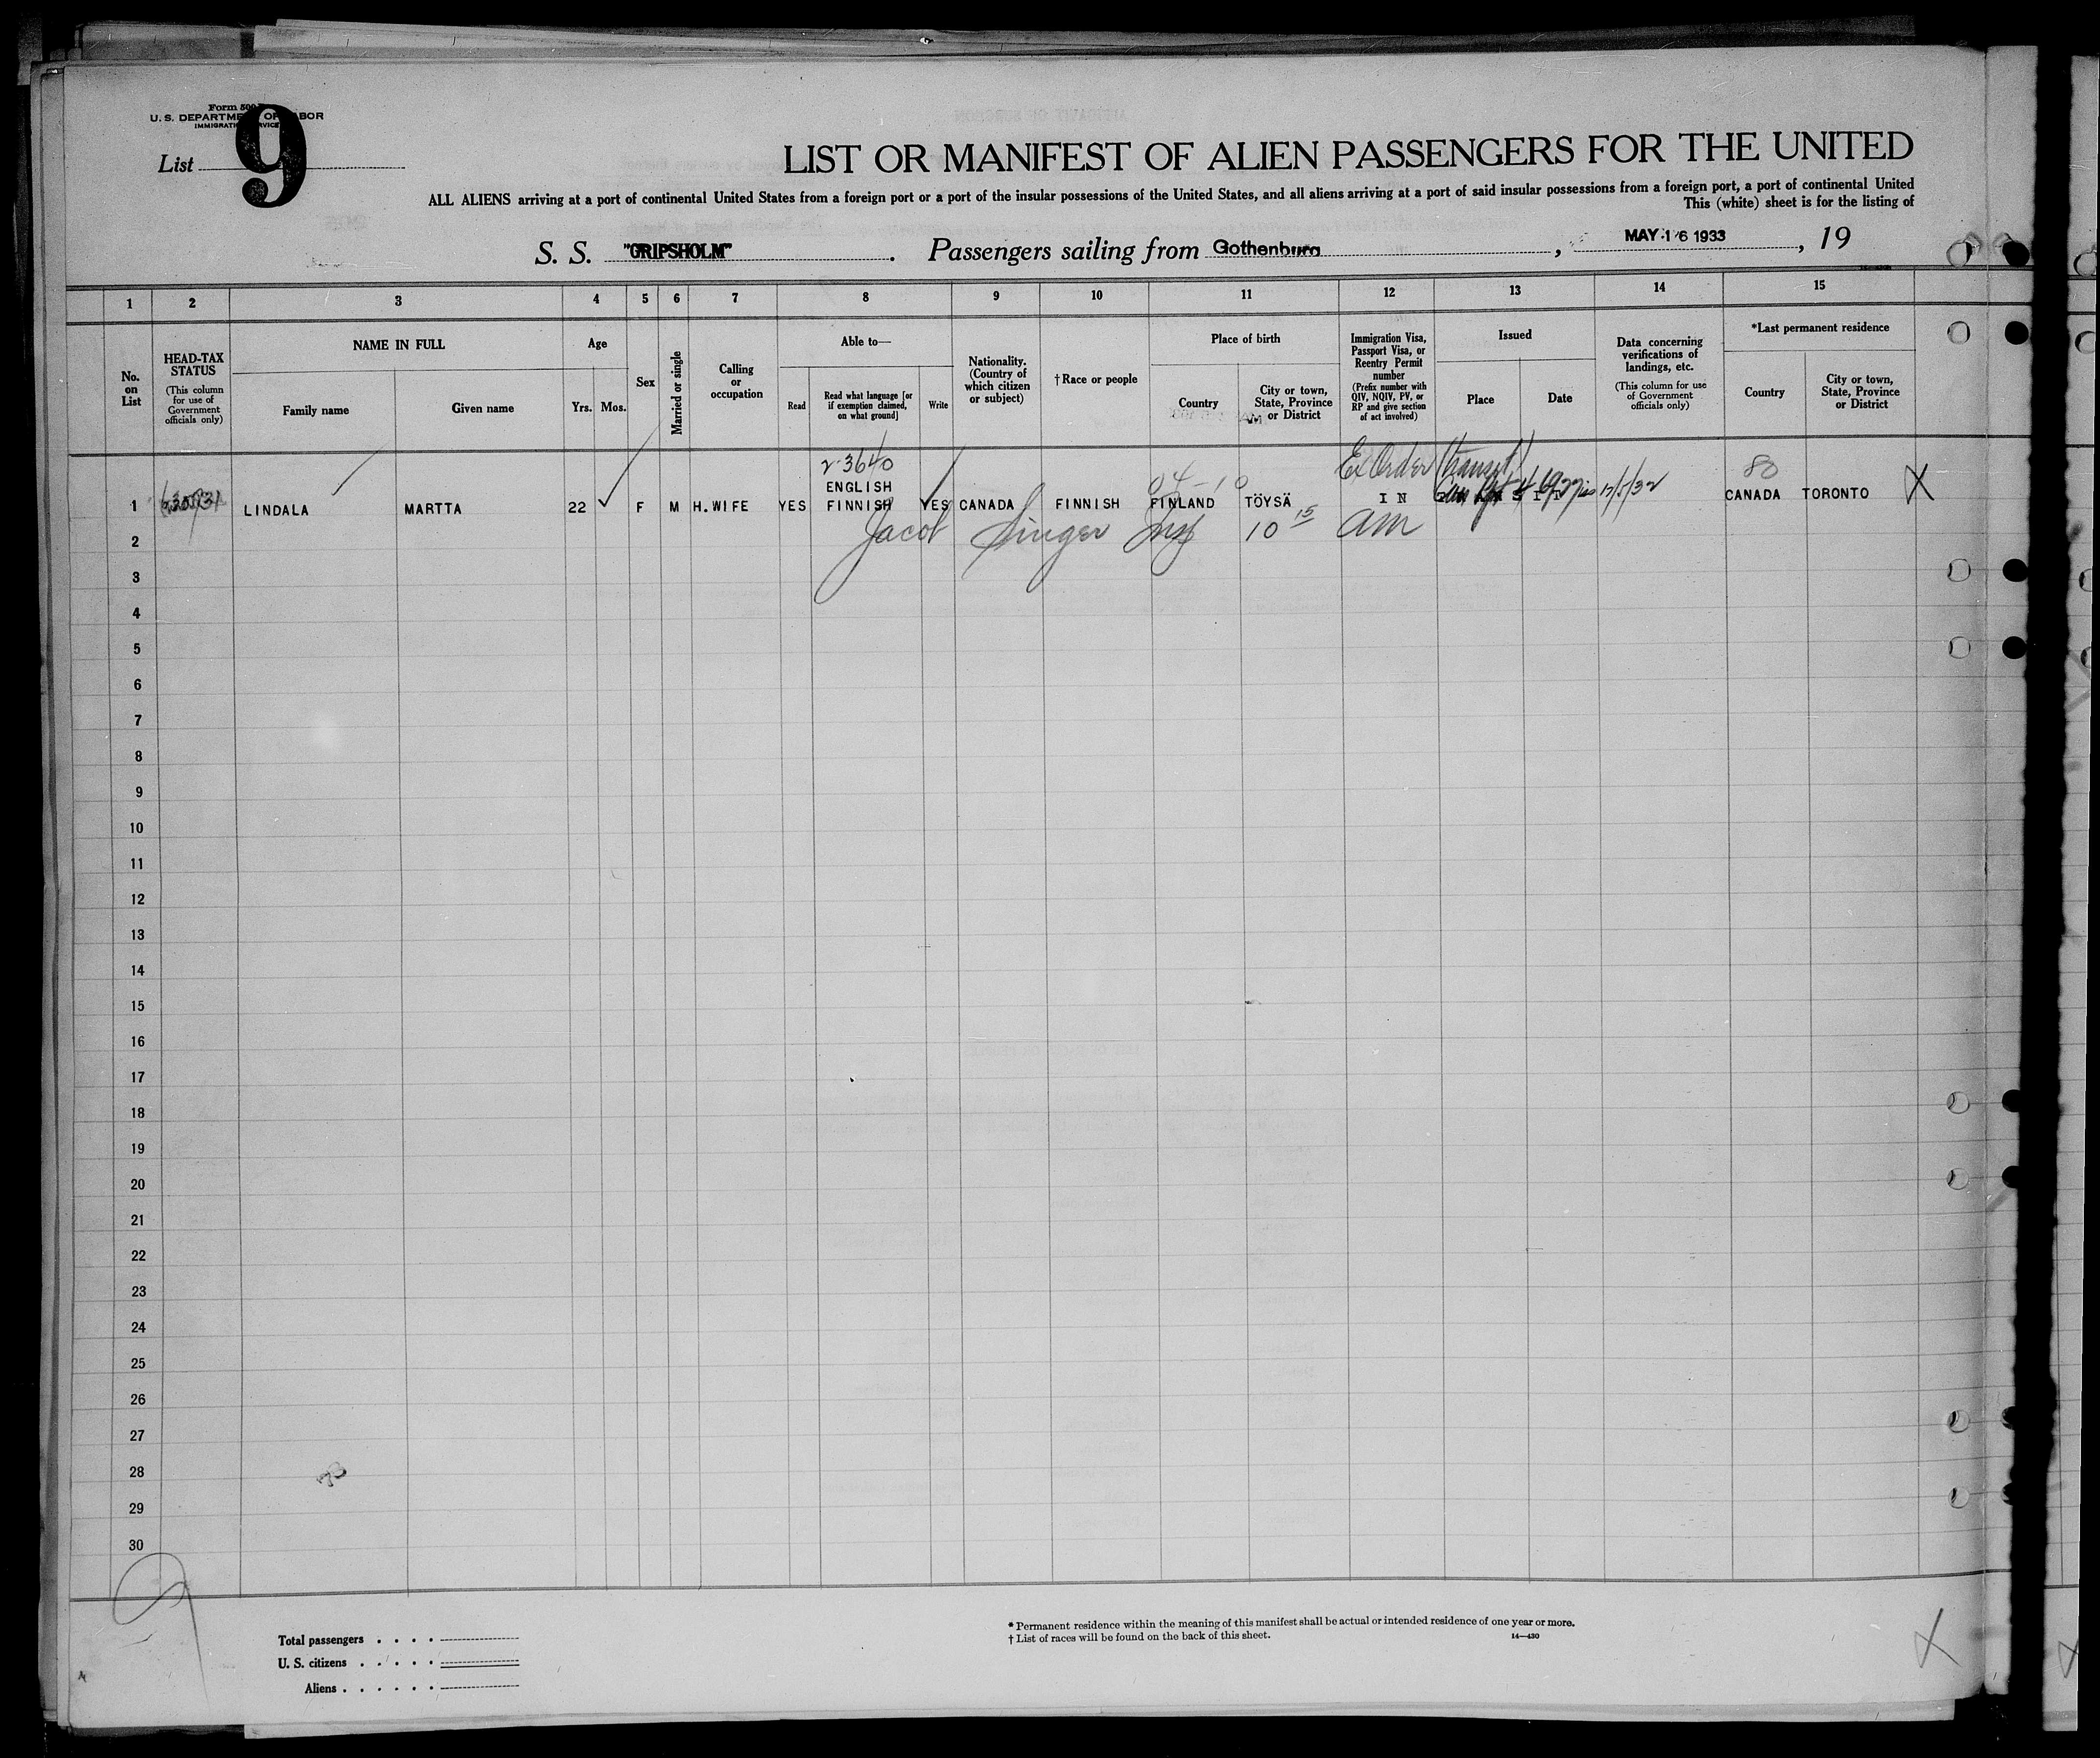 Form 500
U. S. DEPARTMENT OF LABOR
IMMIGRATION SERVICE
List 9
LIST OR MANIFEST OF ALIEN PASSENGERS FOR THE UNITED
ALL ALIENS arriving at a port of continental United States from a foreign port or a port of the insular possessions of the United States, and all aliens arriving at a port of said insular possessions from a foreign port, a port of continental United
This (white) sheet is for the listing of
S. S. "GRIPSHOLM" . Passengers sailing from Gothenburg , MAY 16 1933 , 19
1 2 3 4 5 6 7 8 9 10 11 12 13 14 15
No. on List
HEAD-TAX STATUS (This column for use of Government officials only)
NAME IN FULL
Family name Given name
Age
Yrs. Mos.
Sex
Married or single
Calling or occupation
Able to—
Read Read what language [or if exemption claimed, on what ground] Write
Nationality. (Country of which citizen or subject)
†Race or people
Place of birth
Country City or town, State, Province or District
Immigration Visa, Passport Visa, or Reentry Permit number (Prefix number with QIV, NQIV, PV, or RP and give section of act involved)
Issued
Place Date
Data concerning verifications of landings, etc. (This column for use of Government officials only)
*Last permanent residence
Country City or town, State, Province or District
2-3640 Ex Order (transit) 80
ENGLISH
1 LINDALA MARTTA 22 F M H.WIFE YES FINNISH YES CANADA FINNISH FINLAND TÖYSÄ IN CANADA TORONTO X
2 Jacob Singer Insp 10 15 am
3
4
5
6
7
8
9
10
11
12
13
14
15
16
17
18
19
20
21
22
23
24
25
26
27
28
29
30
9
Total passengers . . . .
U. S. citizens . . . . .
Aliens . . . . . .
* Permanent residence within the meaning of this manifest shall be actual or intended residence of one year or more.
† List of races will be found on the back of this sheet. 14—430
X